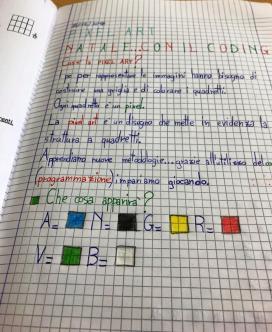 PIXEL ART
NATALE... CON IL CODING
Cos'è la PIXEL ART?
pc per rappresentare le immagini hanno bisogno di
costruire una griglia e di colorare i quadretti.
Ogni quadretto è un pixel.
La pixel art è un disegno che mette in evidenza la
struttura a quadretti.
Apprendiamo nuove metodologie... grazie all'utilizzo del
(programmazione) impariamo giocando.
Che cosa apparirà?
A= N= G= R=
V= B=